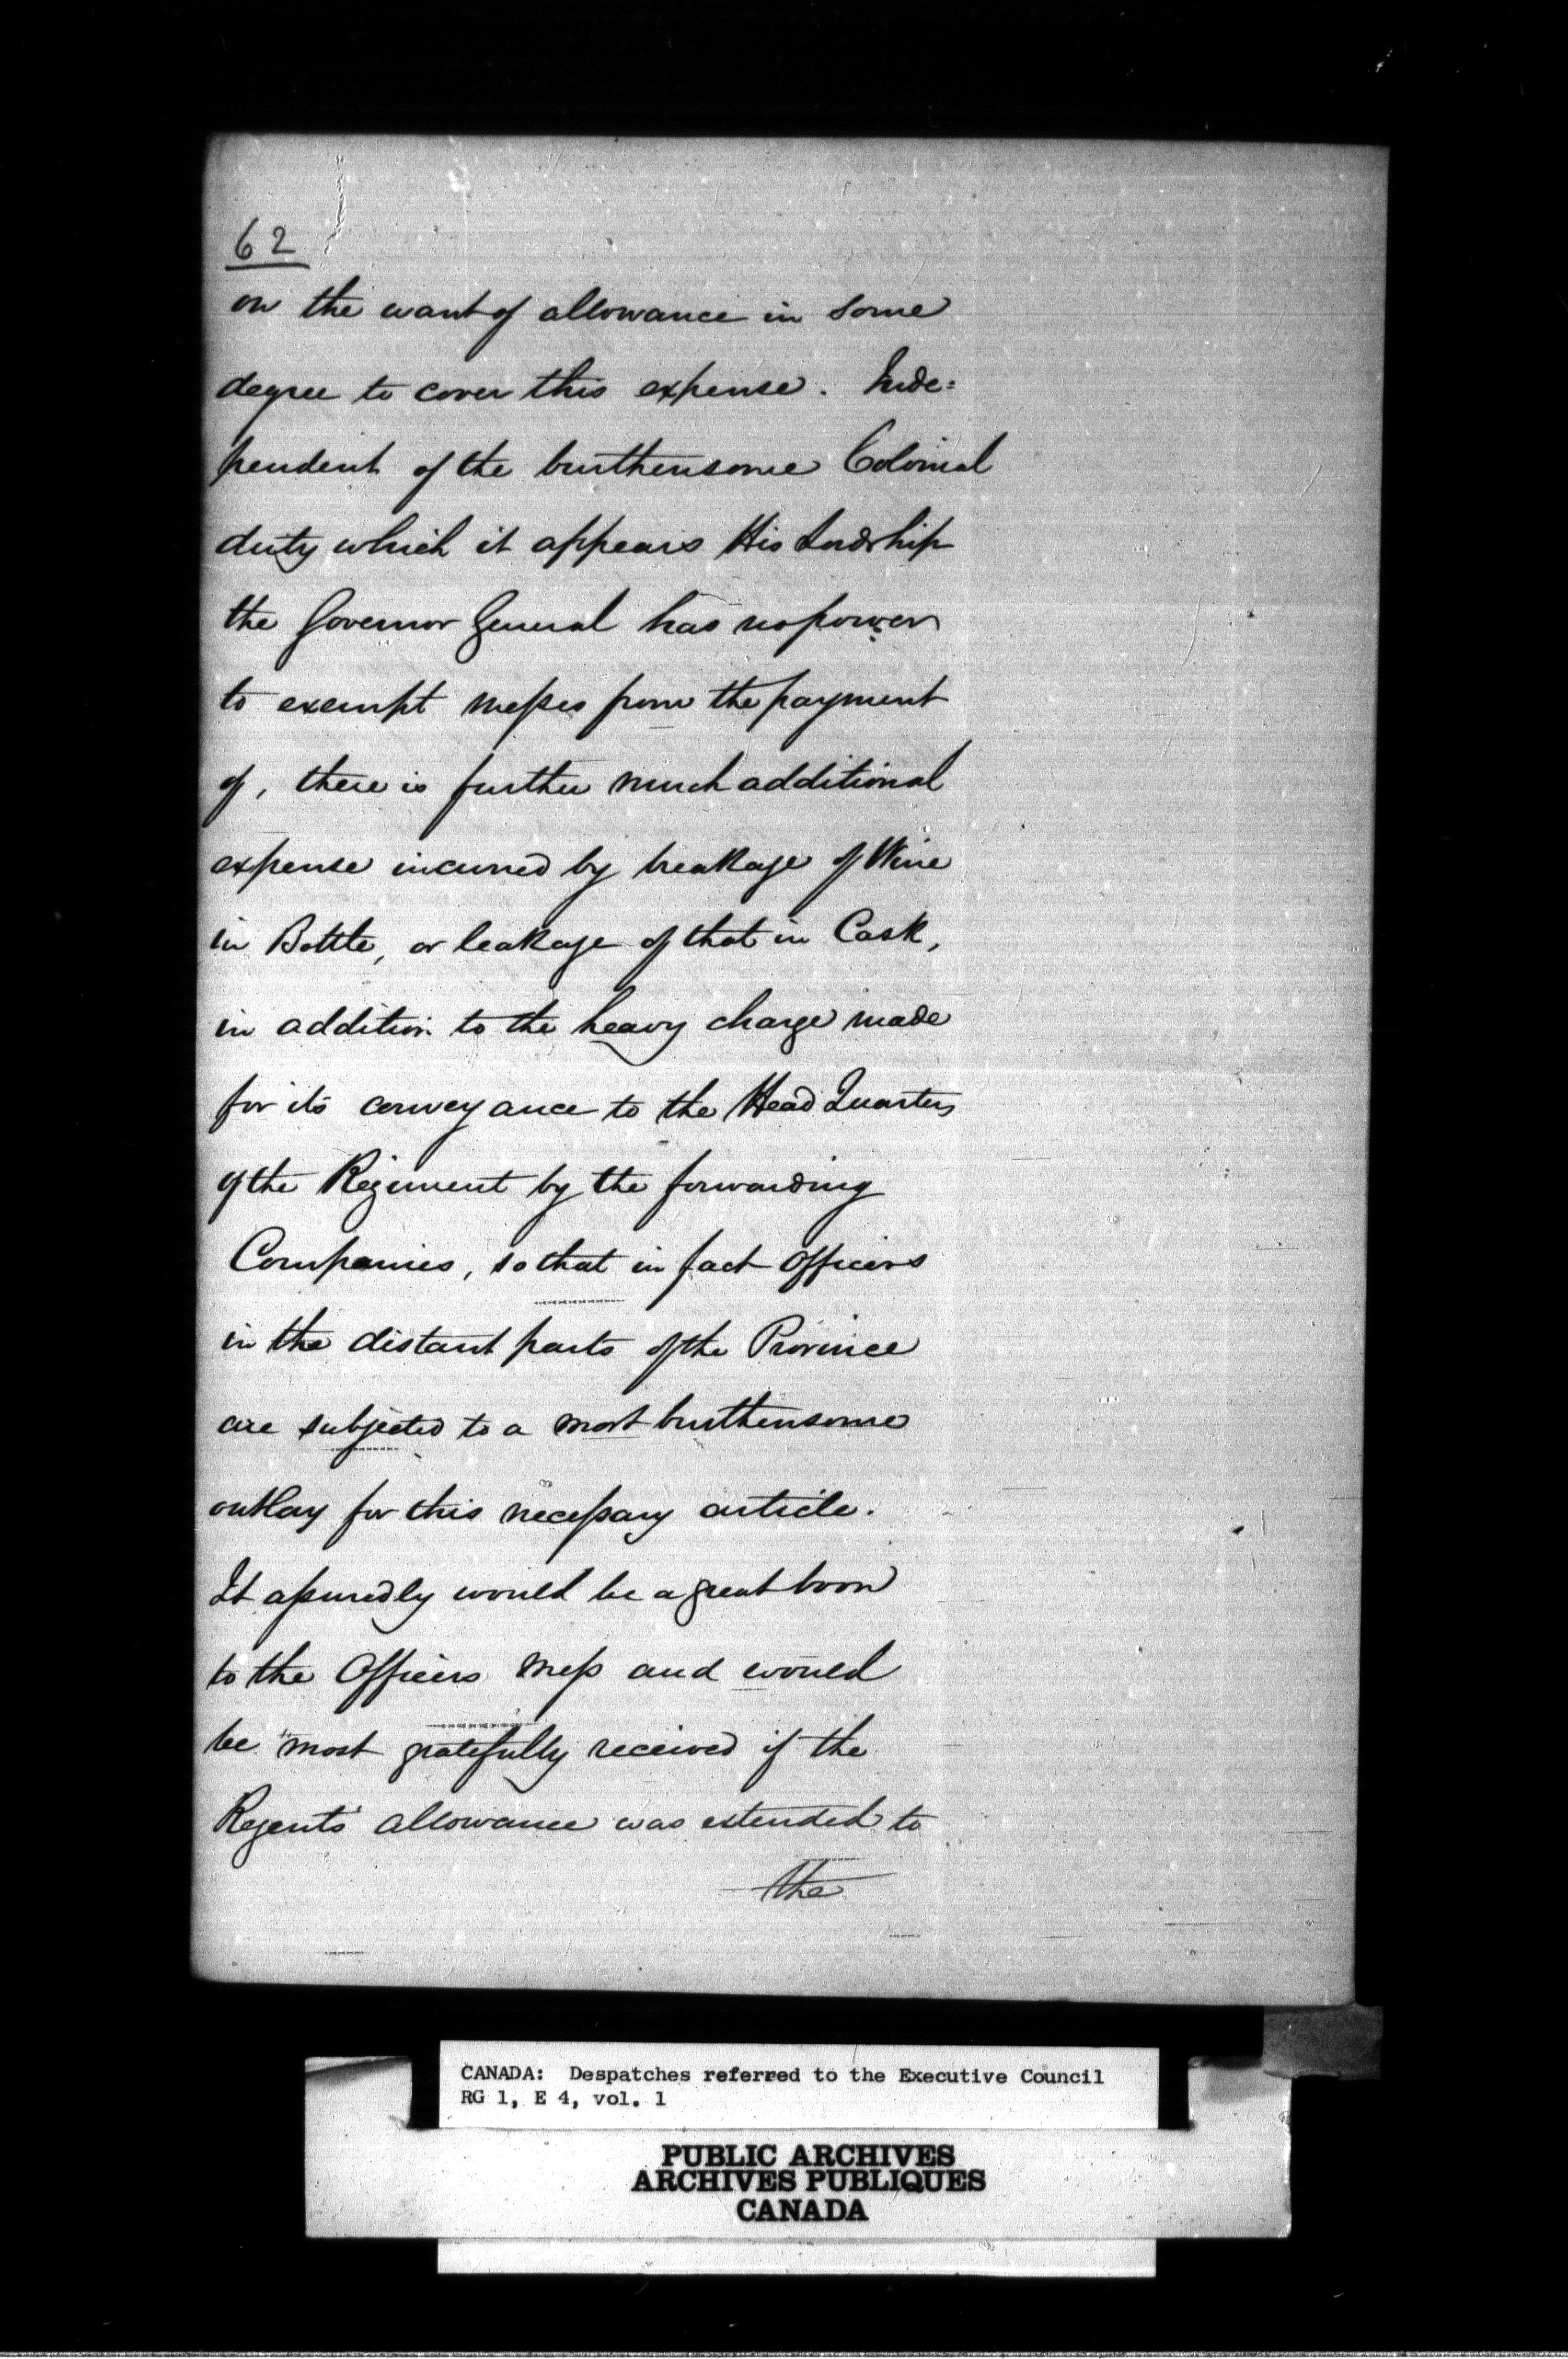 62
on the want of allowance in some
degree to cover this expense. Inde=
pendent of the burthensome Colonial
duty which it appears His Lordship
the Governor General has no power
to exempt messes from the payment
of, there is further much additional
expense incurred by breakage of Wine
in Bottle, or leakage of that in Cask,
in addition to the heavy charge made
for its conveyance to the Head Quarters
of the Regiment by the forwarding
Companies, so that in fact Officers
in the distant parts of the Province
are subjected to a most burthensome
outlay for this necessary article.
It assuredly would be a great boon
to the Officers Mess and would
be most gratefully received if the
Regent's allowance was extended to
the
CANADA: Despatches referred to the Executive Council
RG 1, E 4, vol. 1
PUBLIC ARCHIVES
ARCHIVES PUBLIQUES
CANADA